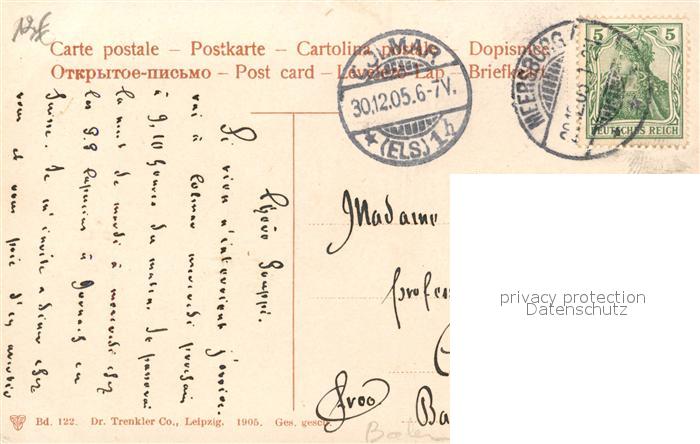 Carte postale – Postkarte – Cartolina postale – Dopisnice
Открытое-письмо – Post card – Levelező-Lap – Briefkaart
COLMAR
30.12.05.6-7V.
(ELS) 1h
MEERSBURG
5 5
DEUTSCHES REICH
Si rien n'intervient j'arrive
rai à Colmar mercredi prochain
à 9,10 heures du matin. Je passerai
la nuit de mardi à mercredi chez
les PP Capucins à
Suisse. Je m'invite à dîner chez
vous et vous prie d'en avertir
Madame
profes
Ba
privacy protection
Datenschutz
Bd. 122. Dr. Trenkler Co., Leipzig. 1905. Ges. gesch.